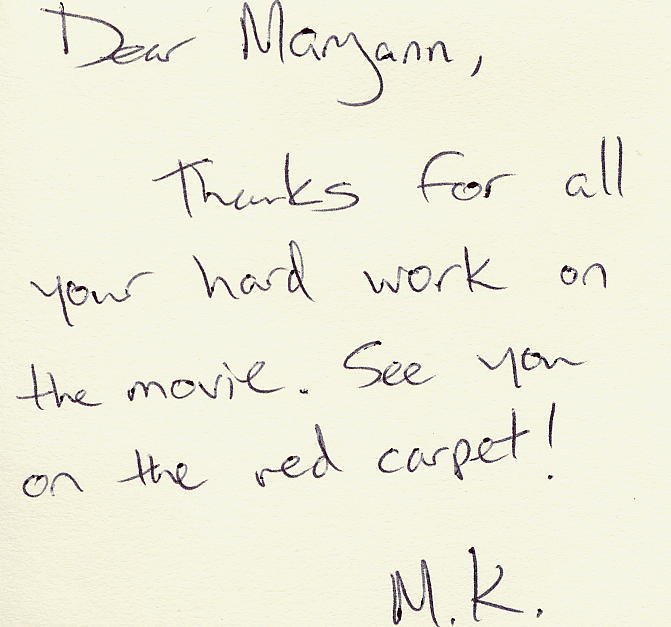 Dear Maryann,
Thanks for all
your hard work on
the movie. See you
on the red carpet!
M.K.